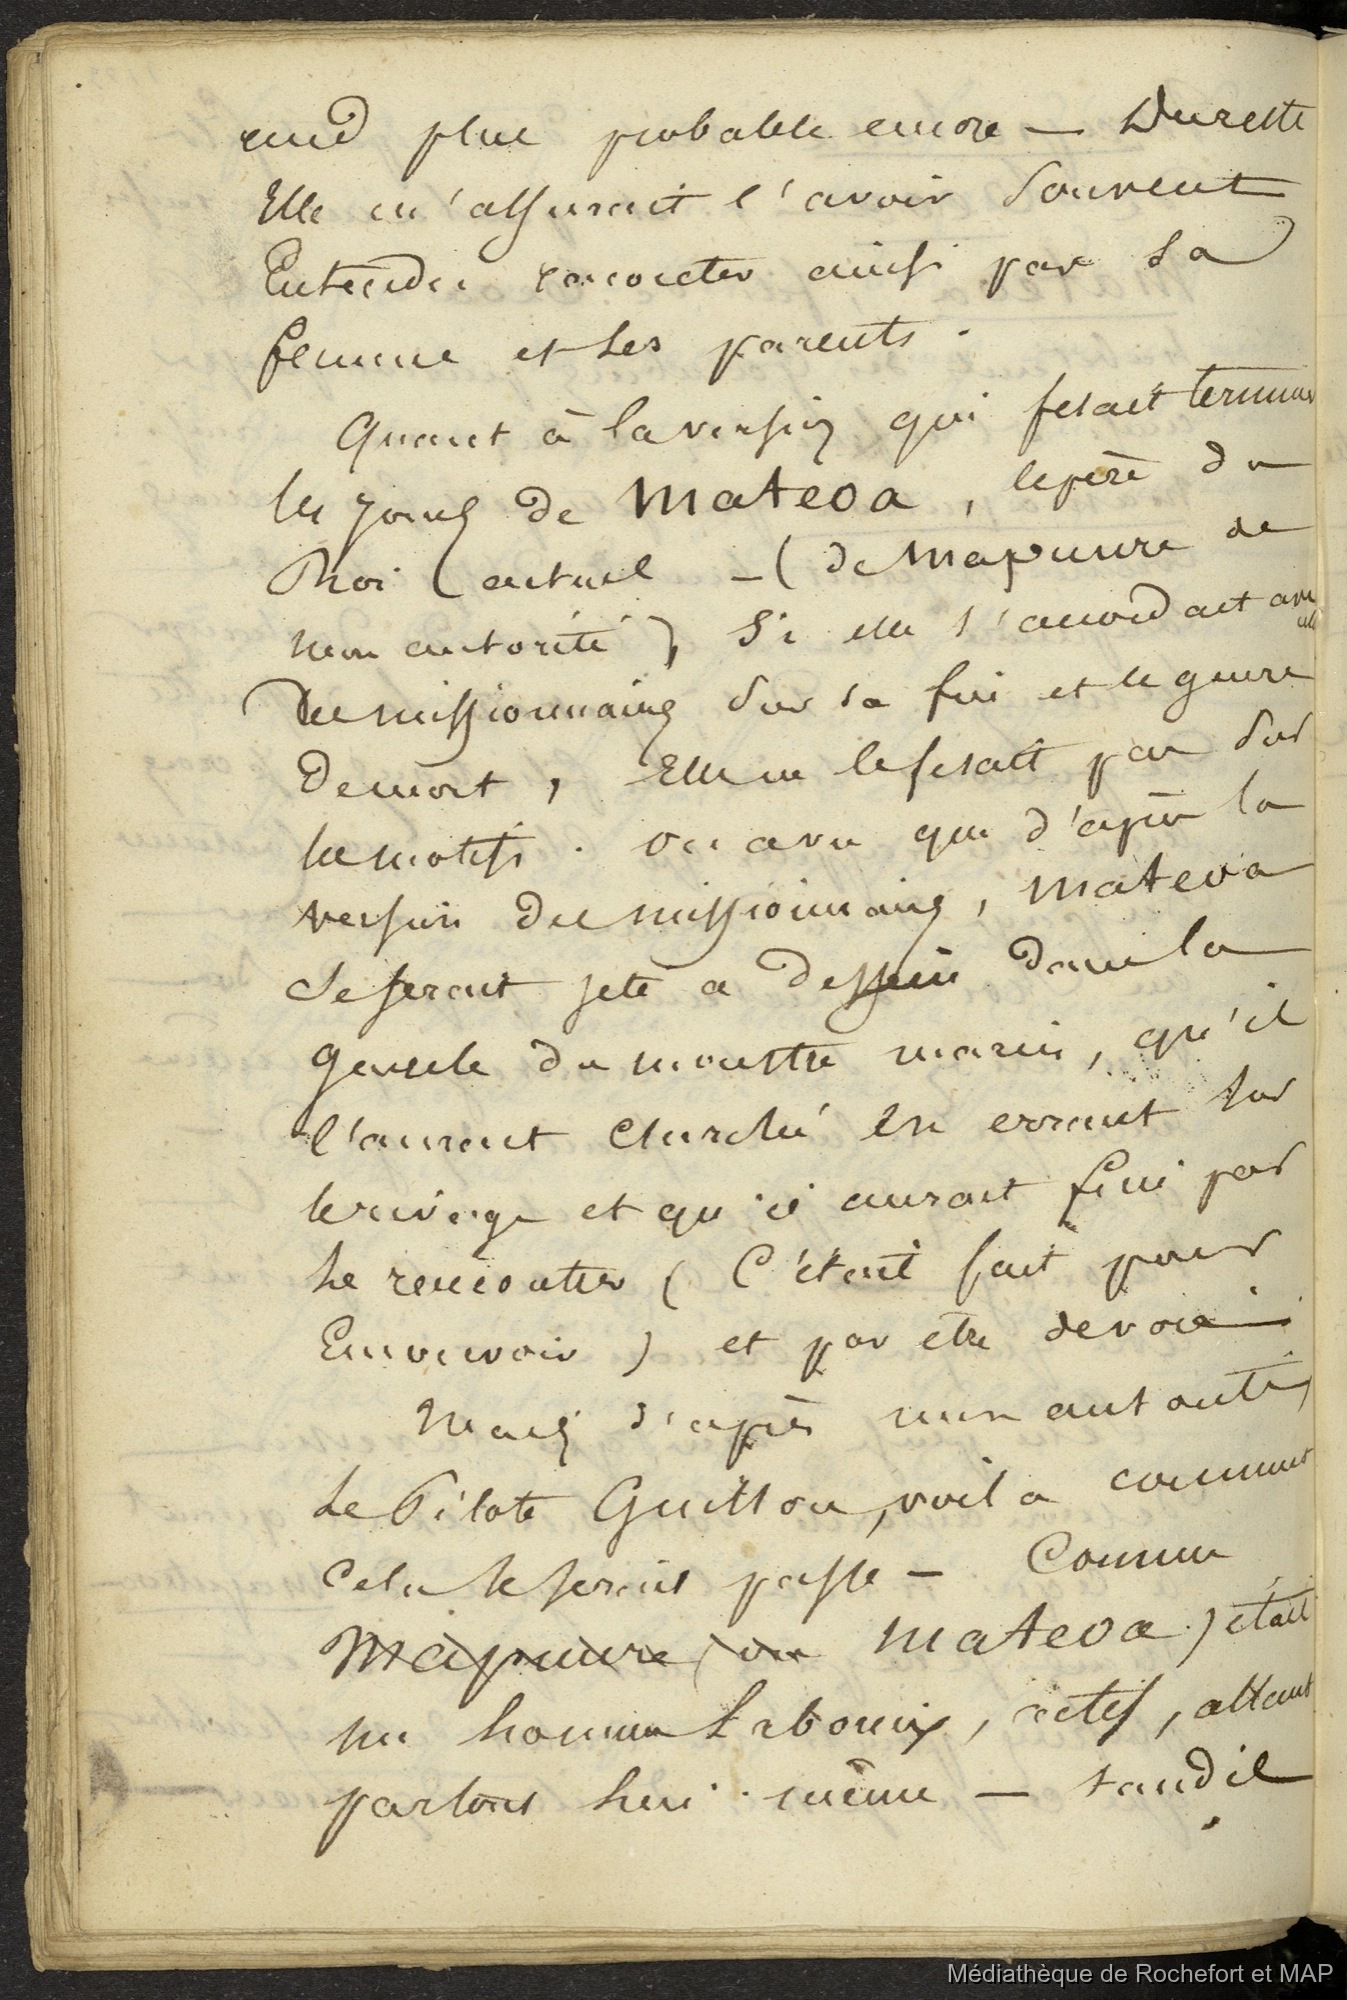 rend plus probable encore — Du reste
Elle m'assurait l'avoir souvent
Entendu raconter ainsi par sa
femme et ses parents.
Quant à la version qui fesait terminer
les jours de Mateoa, le père du
Roi actuel — (de Mapuure de
mon autorité) Si elle s'accordait avec celle
des missionnaires sur sa fin et le genre
de mort, Elle ne le fesait pas sur
les motifs. On a vu que d'après la
version des missionnaires, Mateoa
se serait jeté a dessein dans la
gueule du monstre marin, qu'il
l'aurait cherché en errant sur
le rivage et qu'il aurait fini par
le rencontrer (C'était fait pour
Emouvoir) et par etre devoré
Mais d'après mon autorité,
le Pilote Guitton, voila comment
cela se serait passé — Comme
Mapuure (ou Mateoa) était
un homme laborieux, actif, allant
partout lui-même — tandis